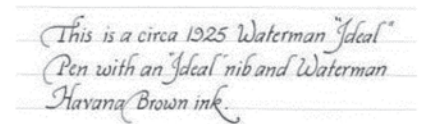 This is a circa 1925 Waterman "Ideal"
Pen with an "Ideal" nib and Waterman
Havana Brown ink.